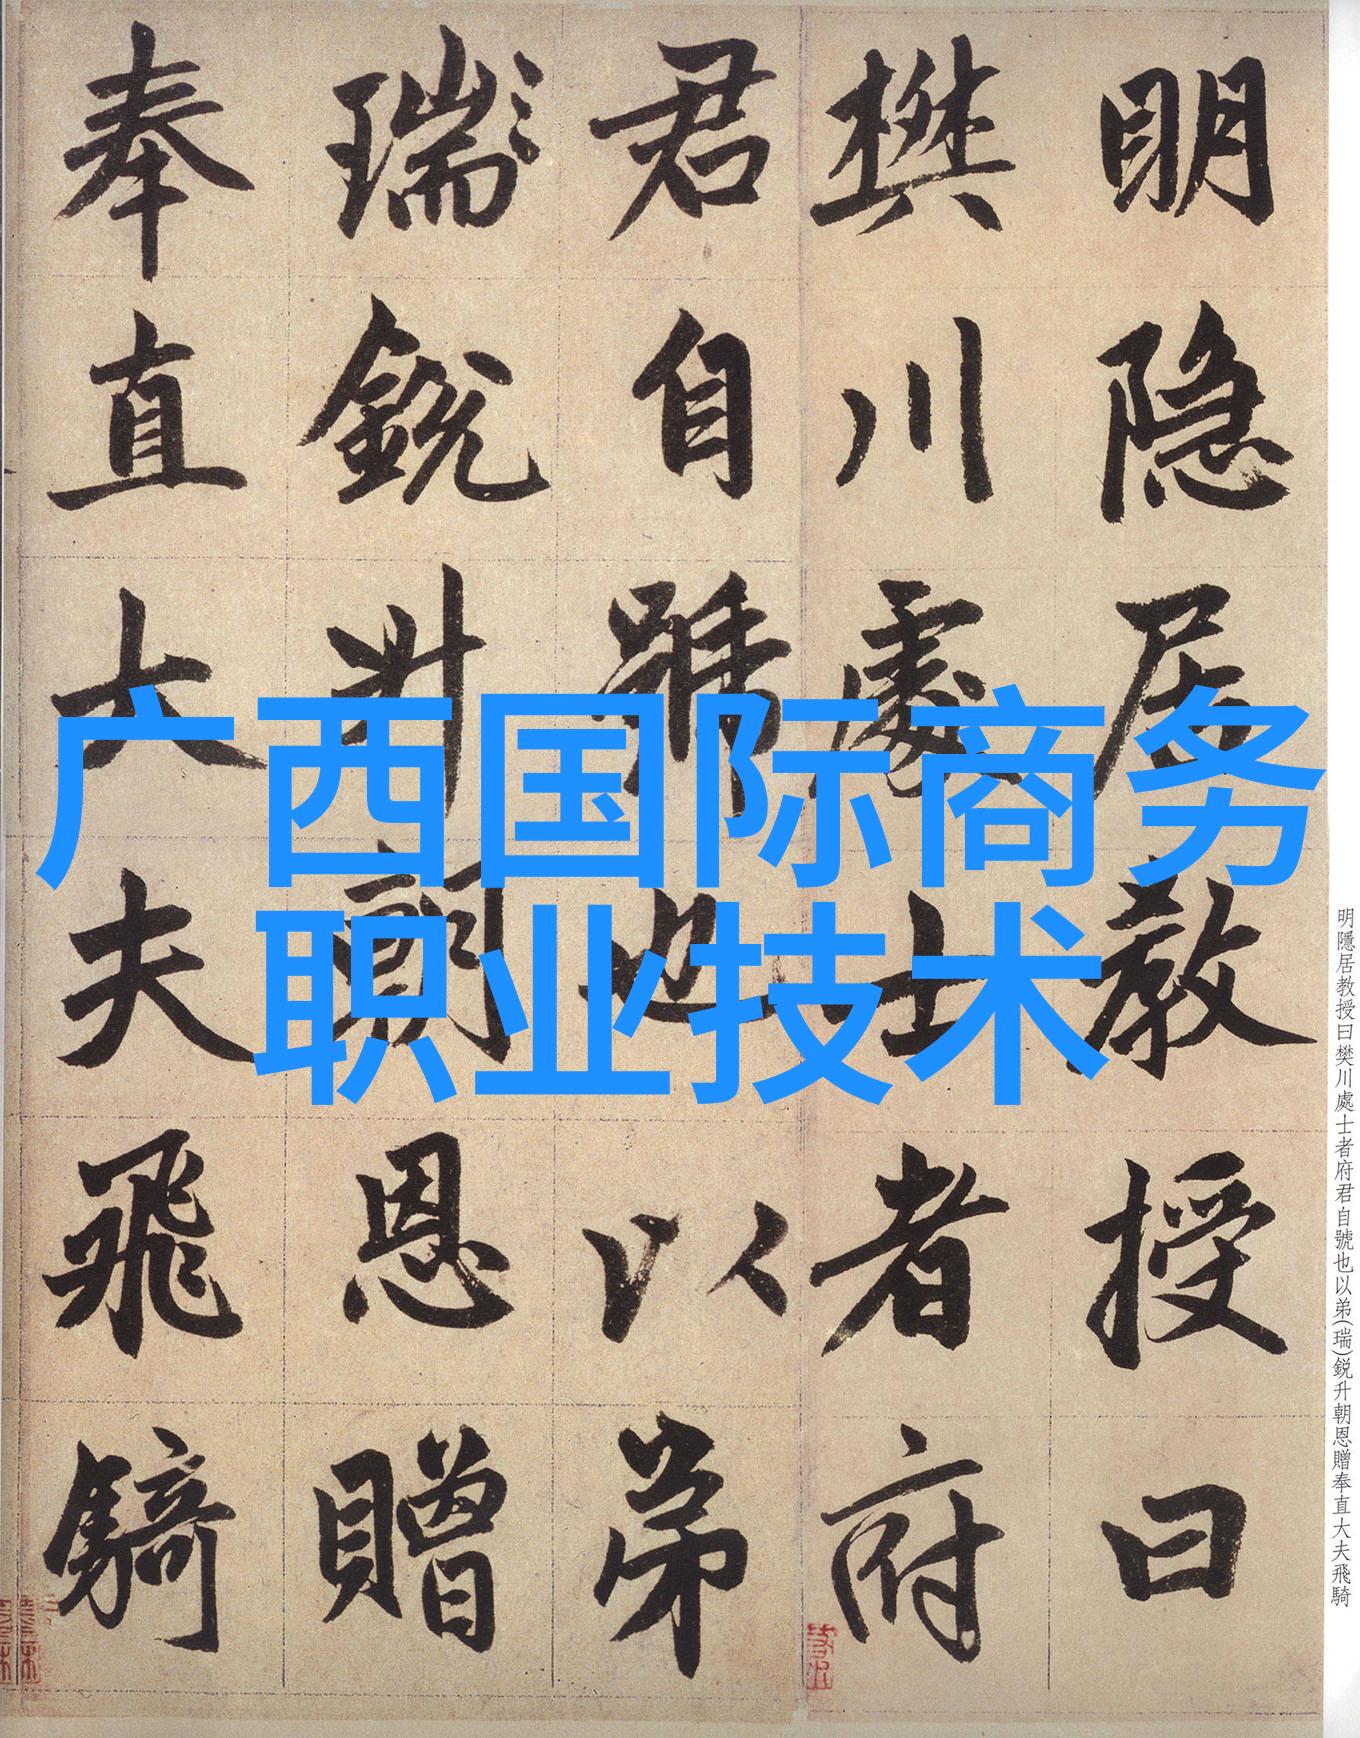 明隐居教授曰
樊川處士者府
君自號也以弟
瑞銳升朝恩贈
奉直大夫飛騎
广西国际商务
职业技术
明隱居教授曰樊川處士者府君自號也以弟(瑞)銳升朝恩贈奉直大夫飛騎